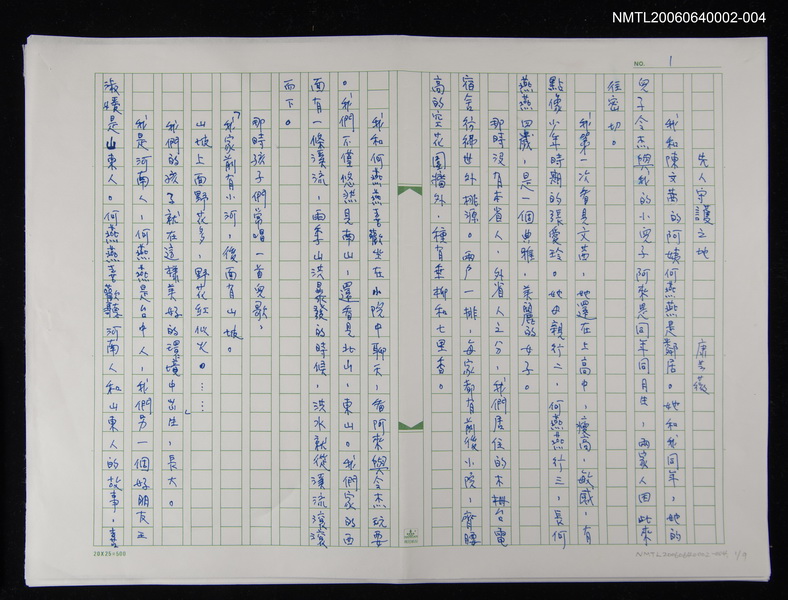 NMTL20060640002-004
NO. 1
先人守護之地　康芸薇
我和陳文茜的阿姨何燕燕是鄰居。她和我同年，她的
兒子令杰與我的小兒子阿來是同年同月生，兩家人因此來
往密切。
我第一次看見文茜，她還在上高中，瘦高，敏感，有
點像少年時期的張愛玲。她母親行二，何燕燕行三，長何
燕燕四歲，是一個典雅，美麗的女子。
那時沒有本省人，外省人之分，我們居住的木柵台電
宿舍彷彿世外桃源。兩戶一排，每家都有前後小院，齊腰
高的空花圍牆外，種有垂柳和七里香。
我和何燕燕喜歡坐在小院中聊天，看阿來與令杰玩耍
。我們不僅悠然見南山，還看見北山，東山。我們家的西
面有一條溪流，雨季山洪暴發的時候，洪水就從溪流滾滾
而下。
那時孩子們常唱一首兒歌，
「我家前有小河，後面有山坡。
山坡上面野花多，野花紅似火。……」
我們的孩子就在這樣美好的環境中出生，長大。
我是河南人，何燕燕是台中人，我們另一個好朋友王
淑嫻是山東人。何燕燕喜歡聽河南人和山東人的故事，喜
20X25=500
NMTL20060640002-004 1/9